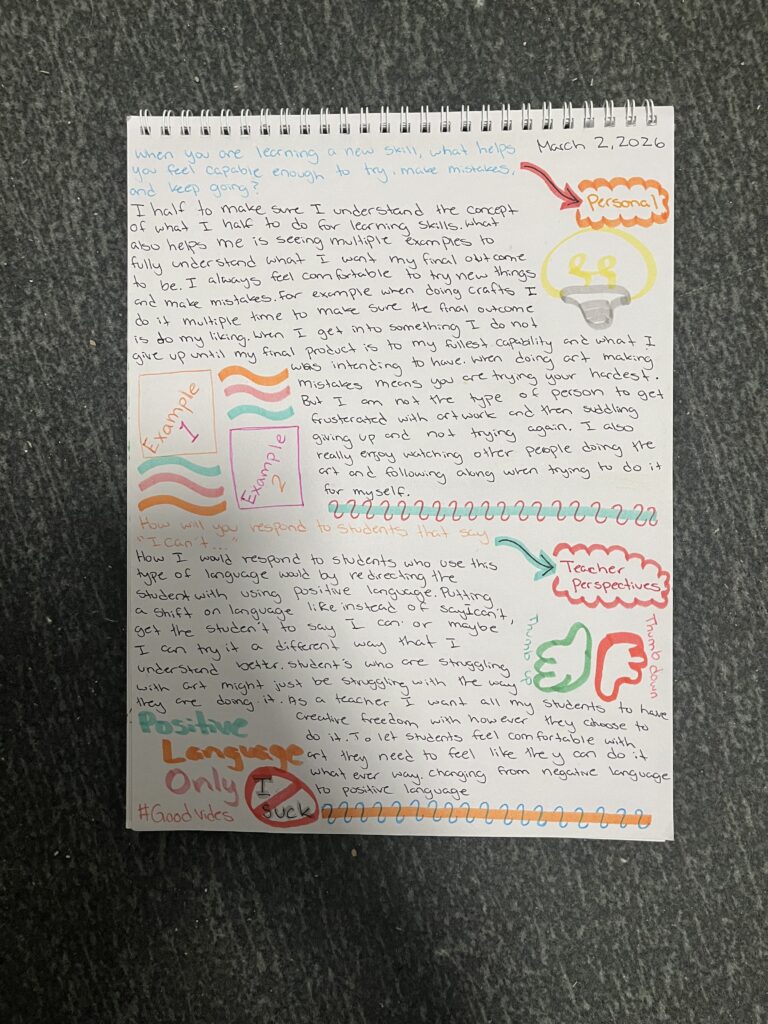 March 2, 2026
When you are learning a new skill, what helps
you feel capable enough to try, make mistakes,
and keep going?
Personal
I half to make sure I understand the concept
of what I half to do for learning skills. What
also helps me is seeing multiple examples to
fully understand what I want my final outcome
to be. I always feel comfortable to try new things
and make mistakes. For example when doing crafts I
do it multiple time to make sure the final outcome
is do my liking. When I get into something I do not
give up until my final product is to my fullest capability and what I
was intending to have. When doing art making
mistakes means you are trying your hardest.
But I am not the type of person to get
frusterated with artwork and then suddling
giving up and not trying again. I also
really enjoy watching other people doing the
art and following along when trying to do it
for myself.
Example
1
Example
2
How will you respond to students that say
"I can't..."
Teacher
Perspectives
How I would respond to students who use this
type of language would by redirecting the
student with using positive language. Putting
a shift on language like instead of say I can't,
get the studen't to say I can. or maybe
I can try it a different way that I
understand better. Student's who are struggling
with art might just be struggling with the way
they are doing it. As a teacher I want all my students to have
creative freedom with however they choose to
do it. To let students feel comfortable with
art they need to feel like they can do it
what ever way. Changing from negative language
to positive language
Thumb up
Thumb down
Positive
Language
Only
#Good vides
I
suck